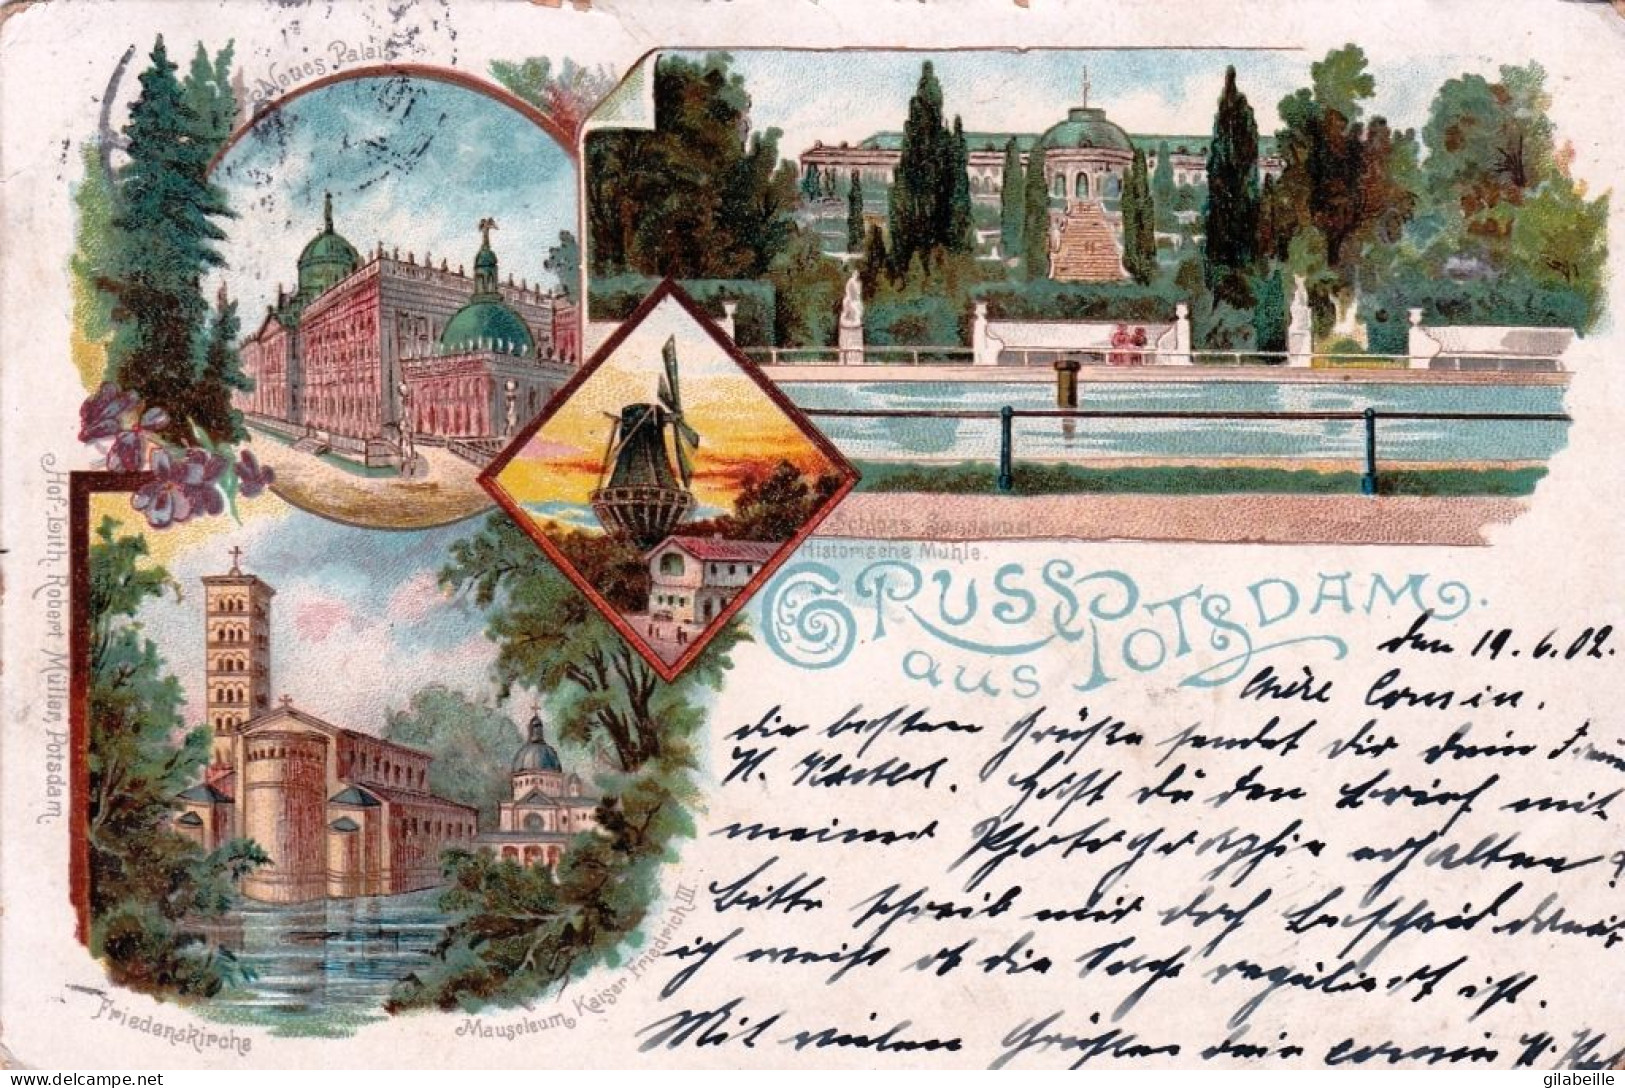 Neues Palais
Schloss Sanssouci
Historische Mühle.
GRUSS
aus POTSDAM.
Hof-Lith. Robert Müller, Potsdam.
Friedenskirche
Mausoleum Kaiser Friedrich III.
den 19. 6. 02.
Chère Cousin.
die besten Grüße sendet dir dein
H. Hast du den Brief mit
meiner Photographie erhalten?
Bitte schreib mir doch Bescheid damit
ich weiß ob die Sache reguliert ist.
Mit vielen Grüßen dein cousin H.
delcampe.net
gilabeille